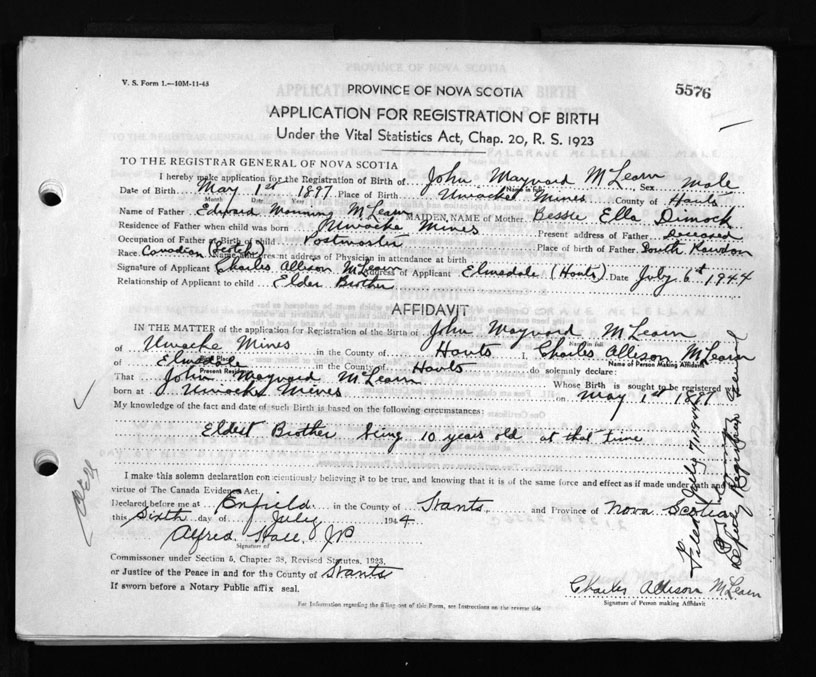 V. S. Form 1.—10M-11-43
5576
PROVINCE OF NOVA SCOTIA
APPLICATION FOR REGISTRATION OF BIRTH
Under the Vital Statistics Act, Chap. 20, R. S. 1923
TO THE REGISTRAR GENERAL OF NOVA SCOTIA
I hereby make application for the Registration of Birth of John Maynard McLearn Sex Male
Name in full
Date of Birth May 1st 1897 Place of Birth Uniacke Mines County of Hants
Month Date Year
Name of Father Edward Manning McLearn MAIDEN NAME of Mother Bessie Ella Dimock
Residence of Father when child was born Uniacke Mines Present address of Father Deceased
Occupation of Father at Birth of child Postmaster Place of birth of Father South Rawdon
Race Canadian (Scotch) Name and present address of Physician in attendance at birth
Signature of Applicant Charles Allison McLearn Address of Applicant Elmsdale (Hants) Date July 6th 1944
Relationship of Applicant to child Elder Brother
AFFIDAVIT
IN THE MATTER of the application for Registration of the Birth of John Maynard McLearn
Name in full
of Uniacke Mines in the County of Hants I, Charles Allison McLearn
Place Name of Person Making Affidavit
of Elmsdale in the County of Hants do solemnly declare:
Present Residence
That John Maynard McLearn Whose Birth is sought to be registered was
born at Uniacke Mines on May 1st 1897
My knowledge of the fact and date of such Birth is based on the following circumstances:
Eldest Brother being 10 years old at that time
I make this solemn declaration conscientiously believing it to be true, and knowing that it is of the same force and effect as if made under oath and
virtue of The Canada Evidence Act.
Declared before me at Enfield in the County of Hants and Province of Nova Scotia
this Sixth day of July 1944
Alfred Hall JP
Signature of
Commissioner under Section 5, Chapter 38, Revised Statutes, 1923,
or Justice of the Peace in and for the County of Hants
If sworn before a Notary Public affix seal.
Charles Allison McLearn
Signature of Person making Affidavit
For Information regarding the filling out of this Form, see Instructions on the reverse side
Filed July 7/1944
Deputy Registrar General